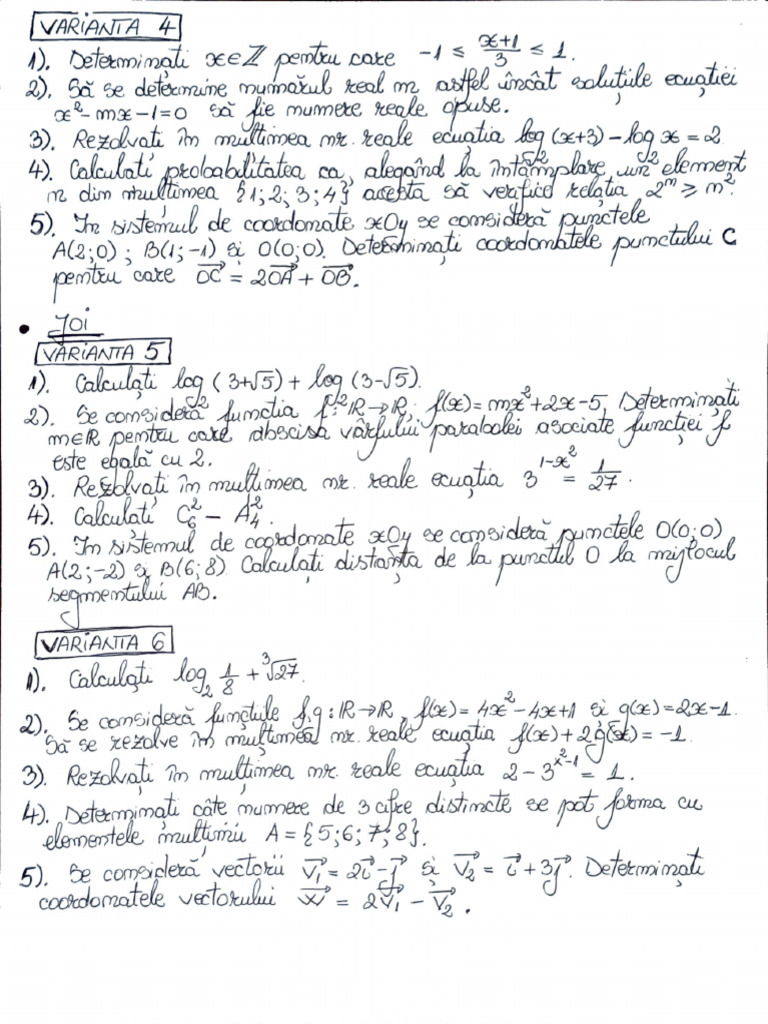 VARIANTA 4
1). Determinați x∈ℤ pentru care -1 ≤ (x+1)/3 ≤ 1.
2). Să se determine numărul real m astfel încât soluțiile ecuației
x²-mx-1=0 să fie numere reale opuse.
3). Rezolvati în multimea nr. reale ecuația log₂(x+3) - log₂x = 2
4). Calculati probabilitatea ca, alegând la întâmplare, un element
n din multimea {1;2;3;4} acesta să verifice relația 2ⁿ ≥ n².
5). În sistemul de coordonate xOy se consideră punctele
A(2;0); B(1;-1) și O(0;0). Determinați coordonatele punctului C
pentru care OC⃗ = 2OA⃗ + OB⃗.
• Joi
VARIANTA 5
1). Calculați log₂(3+√5) + log₂(3-√5).
2). Se consideră functia f: ℝ→ℝ, f(x)=mx²+2x-5. Determinați
m∈ℝ pentru care abscisa vârfului parabolei asociate funcției f
este egală cu 2.
3). Rezolvati în multimea nr. reale ecuația 3^(1-x²) = 1/27.
4). Calculati C₆² - A₄².
5). În sistemul de coordonate xOy se consideră punctele O(0;0)
A(2;-2) și B(6;8) Calculați distanța de la punctul O la mijlocul
segmentului AB.
VARIANTA 6
1). Calculați log₂ 1/8 + ³√27.
2). Se consideră funcțiile f,g: ℝ→ℝ, f(x)=4x²-4x+1 și g(x)=2x-1.
Să se rezolve în mulțimea nr. reale ecuația f(x)+2g(x)=-1.
3). Rezolvați în mulțimea nr. reale ecuația 2-3^(x²-1) = 1.
4). Determinați câte numere de 3 cifre distincte se pot forma cu
elementele mulțimii A={5;6;7;8}.
5). Se consideră vectorii V₁⃗ = 2i⃗ - j⃗ și V₂⃗ = i⃗ + 3j⃗. Determinați
coordonatele vectorului W⃗ = 2V₁⃗ - V₂⃗.